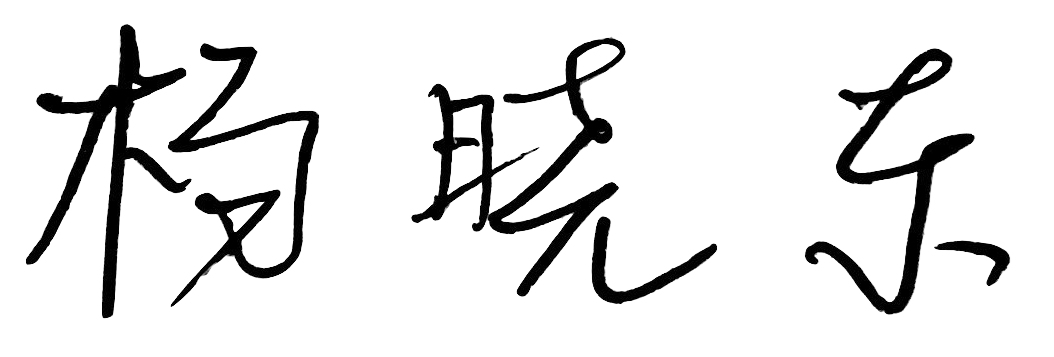 杨晓东